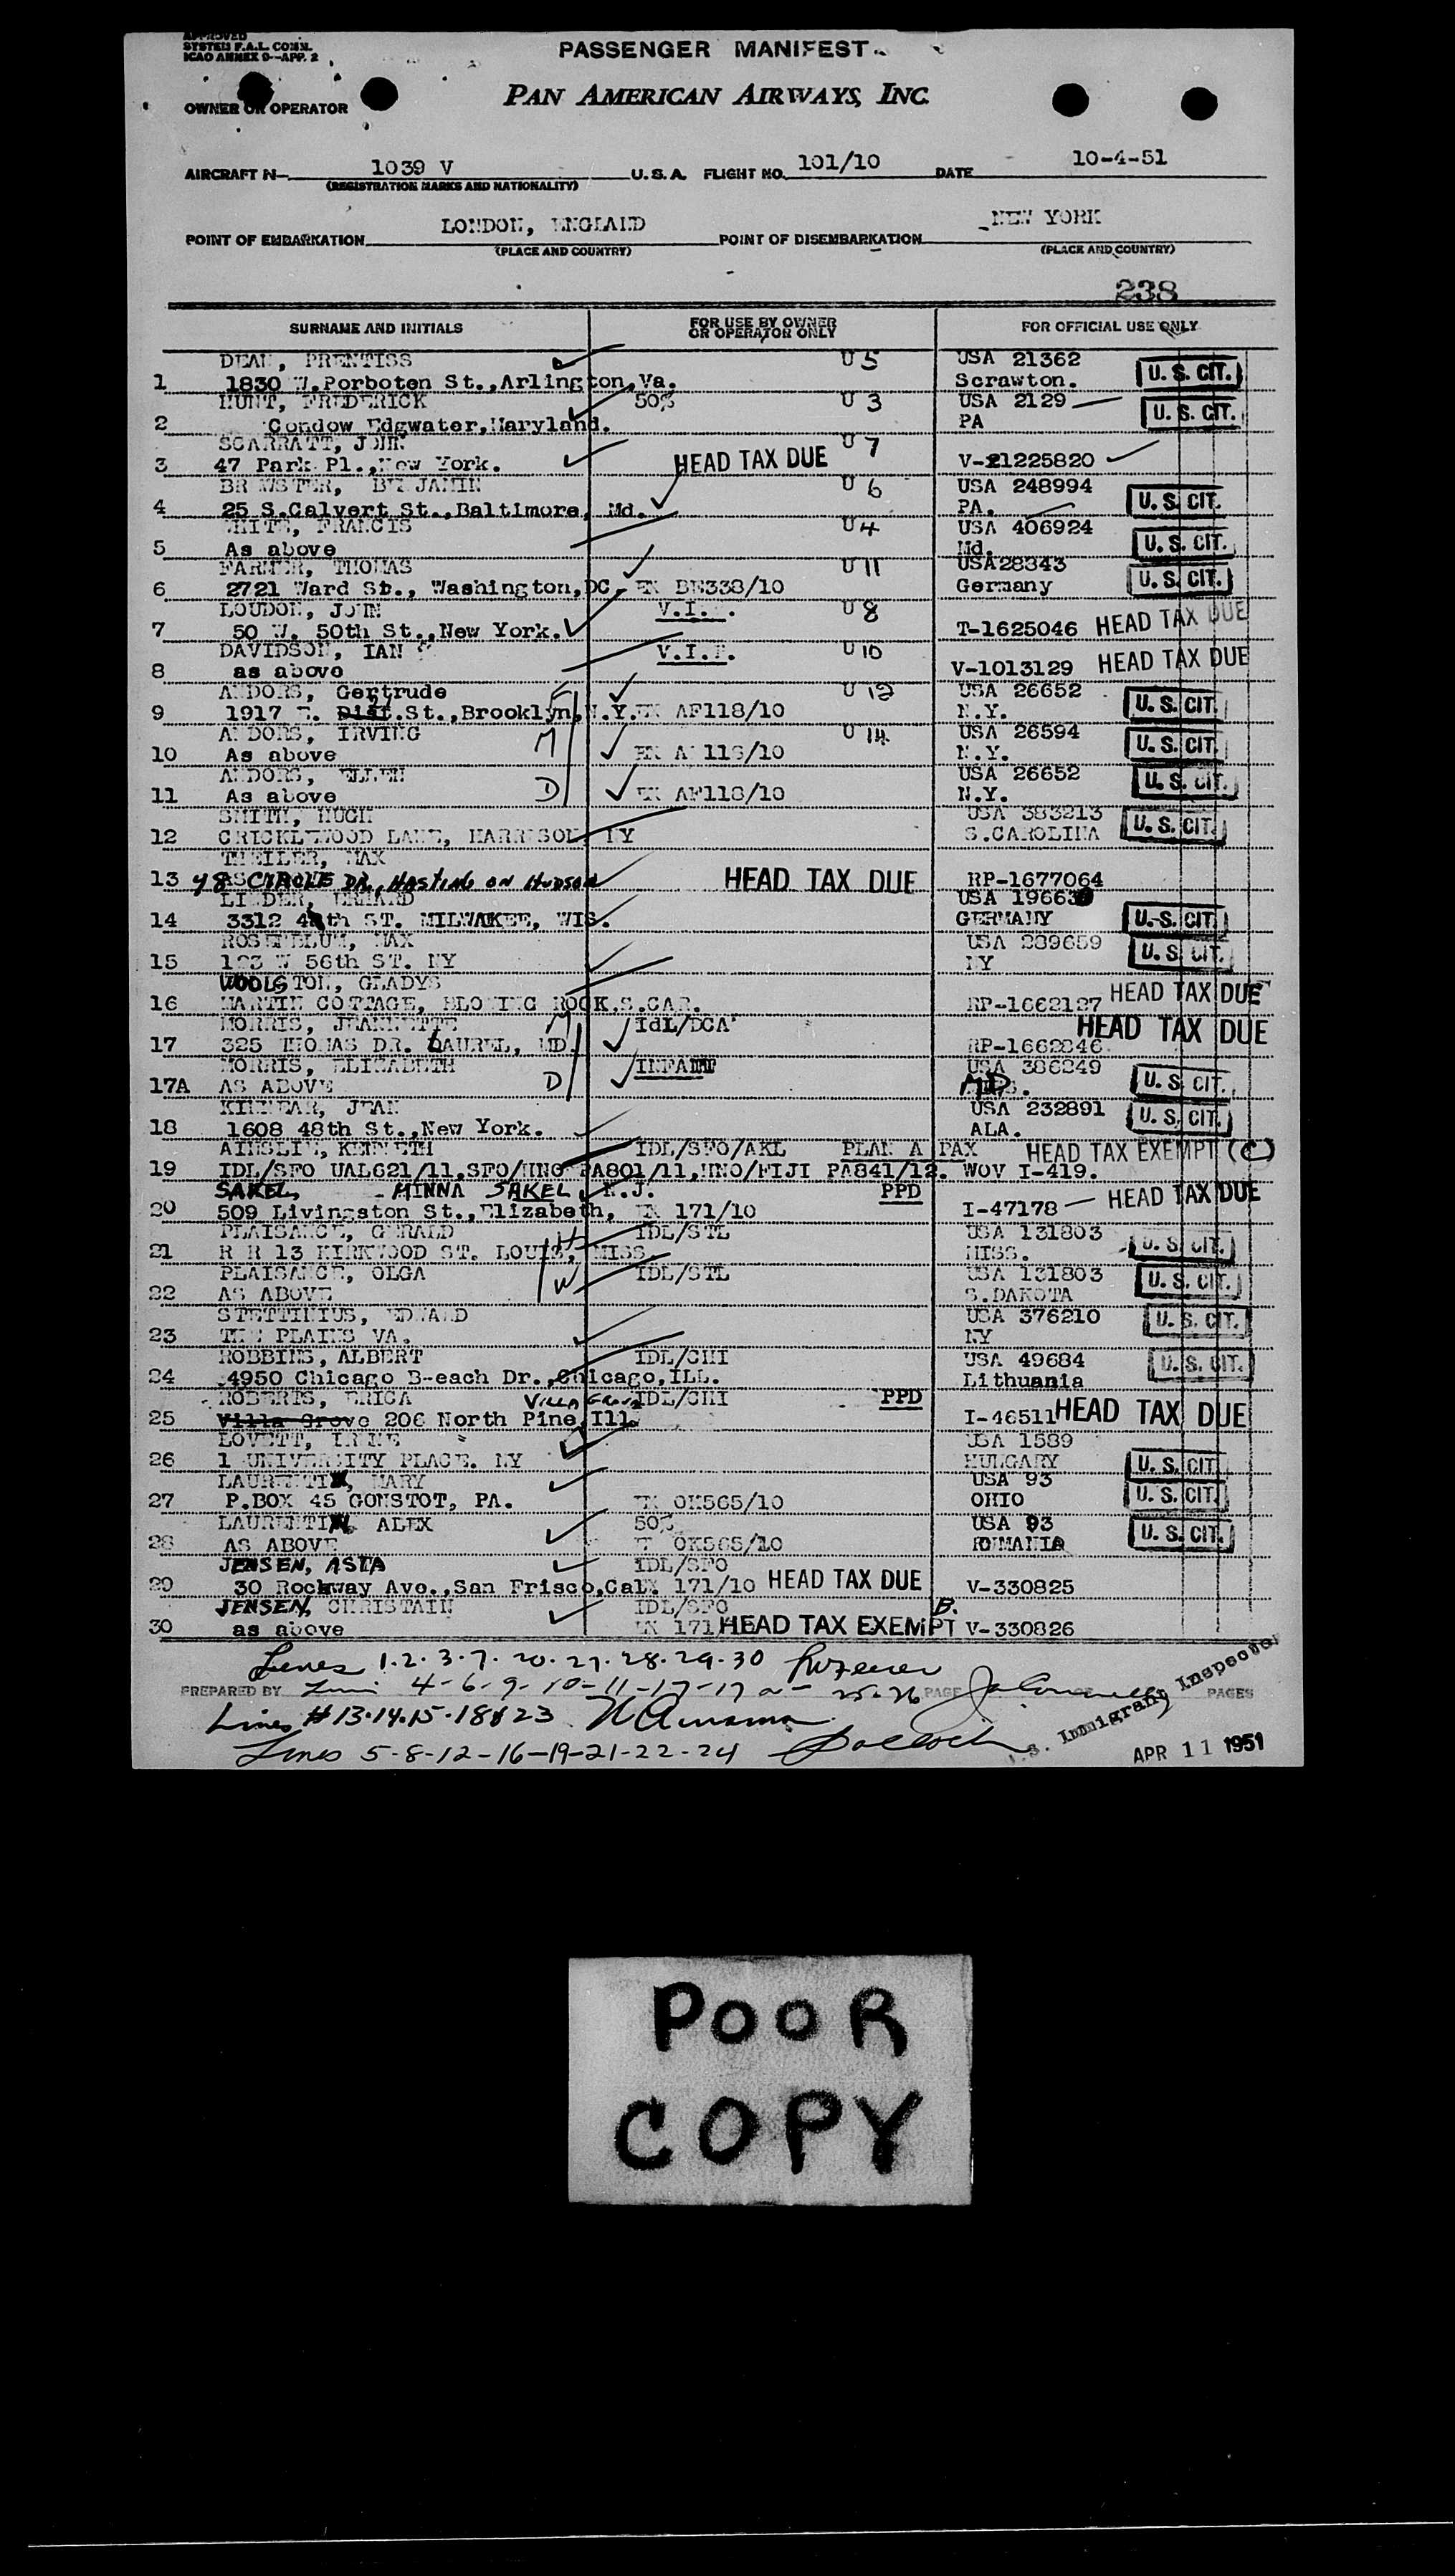 APPROVED
SYSTEM F.A.L. COMM.
ICAO ANNEX 9-APP. 2
PASSENGER MANIFEST
OWNER OR OPERATOR
PAN AMERICAN AIRWAYS, INC.
AIRCRAFT N- 1039 V U.S.A. FLIGHT NO. 101/10 DATE 10-4-51
(REGISTRATION MARKS AND NATIONALITY)
POINT OF EMBARKATION LONDON, ENGLAND POINT OF DISEMBARKATION NEW YORK
(PLACE AND COUNTRY) (PLACE AND COUNTRY)
238
SURNAME AND INITIALS FOR USE BY OWNER OR OPERATOR ONLY FOR OFFICIAL USE ONLY
DEAN, PRENTISS U 5 USA 21362
1 1830 W. Porboten St., Arlington, Va. Scrawton. U. S. CIT.
HUNT, FREDERICK 50% U 3 USA 2129
2 Condow Edgwater, Maryland. PA U. S. CIT.
SCARRATT, JOHN U 7
3 47 Park Pl., New York. HEAD TAX DUE V-21225820
BREWSTER, BENJAMIN U 6 USA 248994
4 25 S. Calvert St., Baltimore, Md. PA. U. S. CIT.
WHITE, FRANCIS U 4 USA 406924
5 As above Md. U. S. CIT.
FARMER, THOMAS U 11 USA28343
6 2721 Ward St., Washington, DC. EX BE338/10 Germany U. S. CIT.
LOUDON, JOHN V.I.P. U 8
7 50 W. 50th St., New York. T-1625046 HEAD TAX DUE
DAVIDSON, IAN V.I.P. U 10
8 as above V-1013129 HEAD TAX DUE
ANDORS, Gertrude F U 12 USA 26652
9 1917 E. 21st. St., Brooklyn, N.Y. EX AF118/10 N.Y. U. S. CIT.
ANDORS, IRVING U 14 USA 26594
10 As above M EX AF118/10 N.Y. U. S. CIT.
ANDORS, ELLEN USA 26652
11 As above D EX AF118/10 N.Y. U. S. CIT.
SMITH, HUGH USA 383213
12 CRICKLEWOOD LANE, HARRISON, NY S.CAROLINA U. S. CIT.
THEILER, MAX
13 48 CIRCLE DR, HASTING ON HUDSON HEAD TAX DUE RP-1677064
LINDER, ERHARD USA 19663
14 3312 48th ST. MILWAKEE, WIS. GERMANY U. S. CIT.
ROSENBLUM, MAX USA 289659
15 123 W 56th ST. NY NY U. S. CIT.
WOOLSTON, GLADYS
16 MARTIN COTTAGE, BLOWING ROCK, S.CAR. RP-1662127 HEAD TAX DUE
MORRIS, JEANNETTE M IdL/DCA HEAD TAX DUE
17 325 THOMAS DR. LAUREL, MD. RP-1662246
MORRIS, ELIZABETH INFANT USA 386249
17A AS ABOVE D MD. U. S. CIT.
KINNEAR, JEAN USA 232891
18 1608 48th St., New York. ALA. U. S. CIT.
AINSLIE, KENNETH IDL/SFO/AKL PLAN A PAX HEAD TAX EXEMPT (C)
19 IDL/SFO UAL621/11, SFO/HNO PA801/11, HNO/FIJI PA841/12. WOV I-419.
SAKEL, MINNA SAKEL N.J. PPD
20 509 Livingston St., Elizabeth, EX 171/10 I-47178 HEAD TAX DUE
PLAISANCE, GERALD H IDL/STL USA 131803
21 R R 13 KIRKWOOD ST. LOUIS, MISS. MISS. U. S. CIT.
PLAISANCE, OLGA W IDL/STL USA 131803
22 AS ABOVE S.DAKOTA U. S. CIT.
STETTINIUS, EDWARD USA 376210
23 THE PLAINS VA. NY U. S. CIT.
ROBBINS, ALBERT IDL/CHI USA 49684
24 4950 Chicago B-each Dr., Chicago, ILL. Lithuania U. S. CIT.
ROBERTS, ERICA VILLA GROVE IDL/CHI PPD
25 Villa Grove 206 North Pine, Ill. I-46511 HEAD TAX DUE
LOVETT, IRENE USA 1589
26 1 UNIVERSITY PLACE. NY HUNGARY U. S. CIT.
LAURENTI, MARY USA 93
27 P.BOX 45 GONSTOT, PA. EX OK565/10 OHIO U. S. CIT.
LAURENTI, ALEX 50% USA 93
28 AS ABOVE EX OK565/10 ROUMANIA U. S. CIT.
JENSEN, ASTA IDL/SFO
29 30 Rockway Ave., San Frisco, Cal. EX 171/10 HEAD TAX DUE V-330825
JENSEN, CHRISTAIN IDL/SFO B.
30 as above EX 171 HEAD TAX EXEMPT V-330826
Lines 1-2-3-7-20-27-28-29-30
PREPARED BY Lines 4-6-9-10-11-17-17a-25-26 PAGE PAGES
Lines #13-14-15-18&23
Lines 5-8-12-16-19-21-22-24
U.S. Immigrant Inspector
APR 11 1951
POOR
COPY